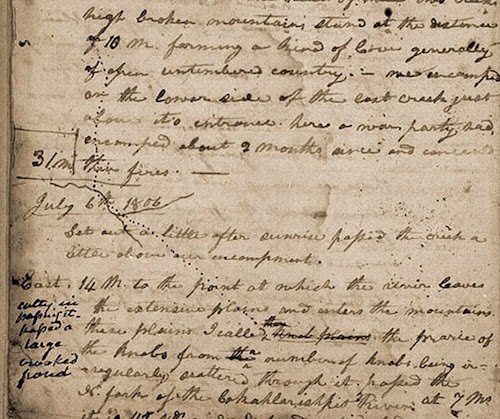 high broken mountains stand at the distance
of 10 M. forming a kind of Cove generally
of open untimbered country. — we encamped
on the lower side of the last creek just
above it's entrance. here a war party had
encamped about 2 months since and conceald
31 m their fires. —
July 6th 1806
Set out a little after sunrise passed the creek a
little above our encampment.
East. 14 M. to the point at which the river leaves
the extensive plains and enters the mountains
these plains I called the prarie of
the knobs from a number of knobs being ir-
regularly scattered through it. passed the
N. fork of the Cokahlarishkit River at 7 Ms
culty in
passing it.
passed a
large
crooked
pond